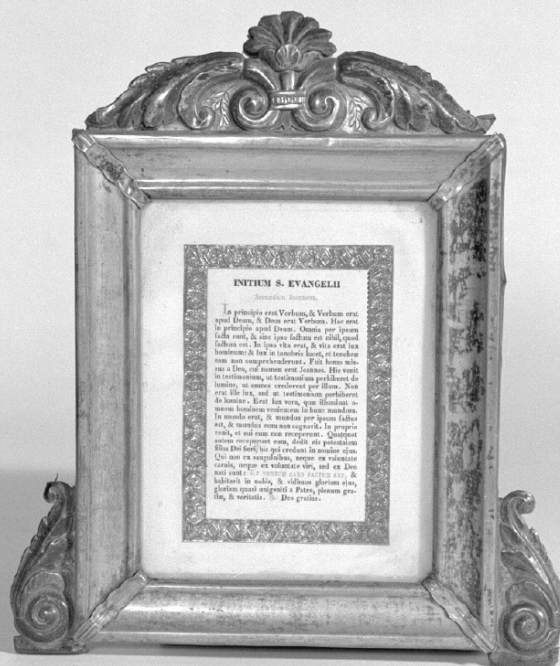 INITIUM S. EVANGELII
Secundum Joannem.
In principio erat Verbum, & Verbum erat
apud Deum, & Deus erat Verbum. Hoc erat
in principio apud Deum. Omnia per ipsum
facta sunt, & sine ipso factum est nihil, quod
factum est. In ipso vita erat, & vita erat lux
hominum: & lux in tenebris lucet, et tenebræ
eam non comprehenderunt. Fuit homo mis-
sus a Deo, cui nomen erat Joannes. Hic venit
in testimonium, ut testimonium perhiberet de
lumine, ut omnes crederent per illum. Non
erat ille lux, sed ut testimonium perhiberet
de lumine. Erat lux vera, quæ illuminat o-
mnem hominem venientem in hunc mundum.
In mundo erat, & mundus per ipsum factus
est, & mundus eum non cognovit. In propria
venit, et sui eum non receperunt. Quotquot
autem receperunt eum, dedit eis potestatem
filios Dei fieri, his qui credunt in nomine ejus.
Qui non ex sanguinibus, neque ex voluntate
carnis, neque ex voluntate viri, sed ex Deo
nati sunt: ET VERBUM CARO FACTUM EST, &
habitavit in nobis, & vidimus gloriam ejus,
gloriam quasi unigeniti a Patre, plenum gra-
tiæ, & veritatis. ℟. Deo gratias.